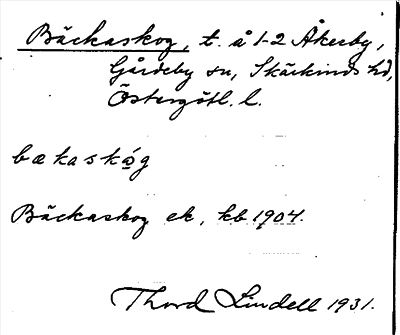 Bäckaskog, t. å 1-2 Åkerby,
Gårdeby sn, Skärkinds hd,
Östergötl. l.
bækaskóg
Bäckaskog ek, kb 1904.
Thord Lindell 1931.